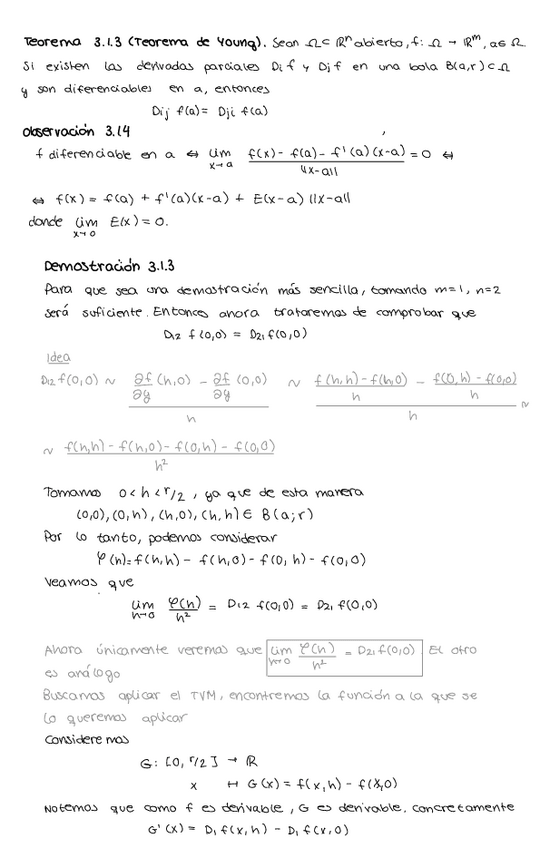 Teorema 3.1.3 (Teorema de Young). Sean Ω⊂ ℝⁿ abierto, f: Ω → ℝᵐ, a∈ Ω.
Si existen las derivadas parciales Di f y Dj f en una bola B(a,r)⊂Ω
y son diferenciables en a, entonces
Dij f(a) = Dji f(a)
Observación 3.1.4
f diferenciable en a ⇔ lim x→a (f(x) - f(a) - f'(a)(x-a)) / ||x-a|| = 0 ⇔
⇔ f(x) = f(a) + f'(a)(x-a) + E(x-a) ||x-a||
donde lim x→0 E(x) = 0.
Demostración 3.1.3
Para que sea una demostración más sencilla, tomando m=1, n=2
será suficiente. Entonces ahora trataremos de comprobar que
D12 f(0,0) = D21 f(0,0)
Idea
D12 f(0,0) ~ (∂f/∂y (h,0) - ∂f/∂y (0,0)) / h ~ ((f(h,h) - f(h,0)) / h - (f(0,h) - f(0,0)) / h) / h ~
~ (f(h,h) - f(h,0) - f(0,h) - f(0,0)) / h²
Tomamos 0 < h < r/2, ya que de esta manera
(0,0), (0,h), (h,0), (h,h) ∈ B(a;r)
Por lo tanto, podemos considerar
φ(h) = f(h,h) - f(h,0) - f(0,h) - f(0,0)
Veamos que
lim h→0 φ(h)/h² = D12 f(0,0) = D21 f(0,0)
Ahora únicamente veremos que lim h→0 φ(h)/h² = D21 f(0,0) El otro
es análogo
Buscamos aplicar el TVM, encontremos la función a la que se
lo queremos aplicar
Consideremos
G: [0, r/2] → ℝ
x ↦ G(x) = f(x,h) - f(x,0)
Notemos que como f es derivable, G es derivable, concretamente
G'(x) = D₁ f(x,h) - D₁ f(x,0)